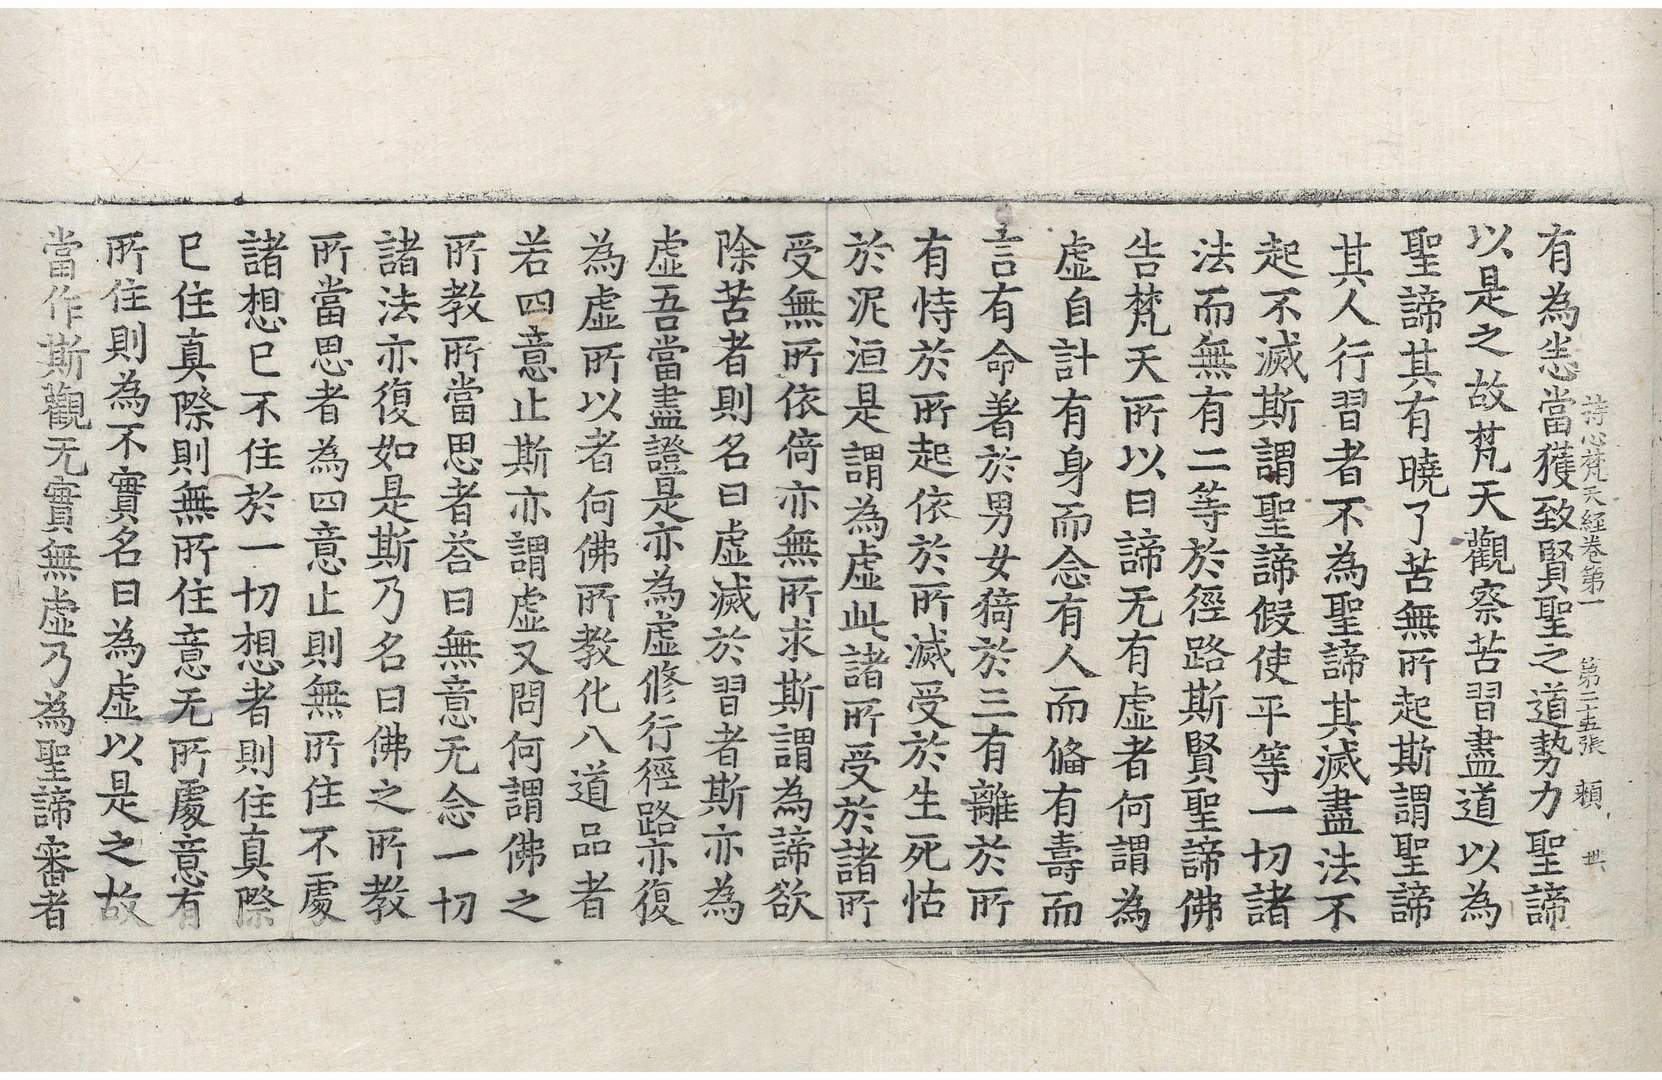 有為恙當獲致賢聖之道勢力聖諦
持心梵天經卷第一　第三十五張　賴
以是之故梵天觀察苦習盡道以為
聖諦其有曉了苦無所起斯謂聖諦
其人行習者不為聖諦其滅盡法不
起不滅斯謂聖諦假使平等一切諸
法而無有二等於徑路斯賢聖諦佛
告梵天所以曰諦无有虛者何謂為
虛自計有身而念有人而俻有壽而
言有命著於男女猗於三有離於所
有恃於所起依於所滅受於生死怙
於泥洹是謂為虛此諸所受於諸所
受無所依倚亦無所求斯謂為諦欲
除苦者則名曰虛滅於習者斯亦為
虛吾當盡證是亦為虛修行徑路亦復
為虛所以者何佛所教化八道品者
若四意止斯亦謂虛又問何謂佛之
所教所當思者荅曰無意无念一切
諸法亦復如是斯乃名曰佛之所教
所當思者為四意止則無所住不處
諸想已不住於一切想者則住真際
已住真際則無所住意无所處意有
所住則為不實名曰為虛以是之故
當作斯觀无實無虛乃為聖諦審者